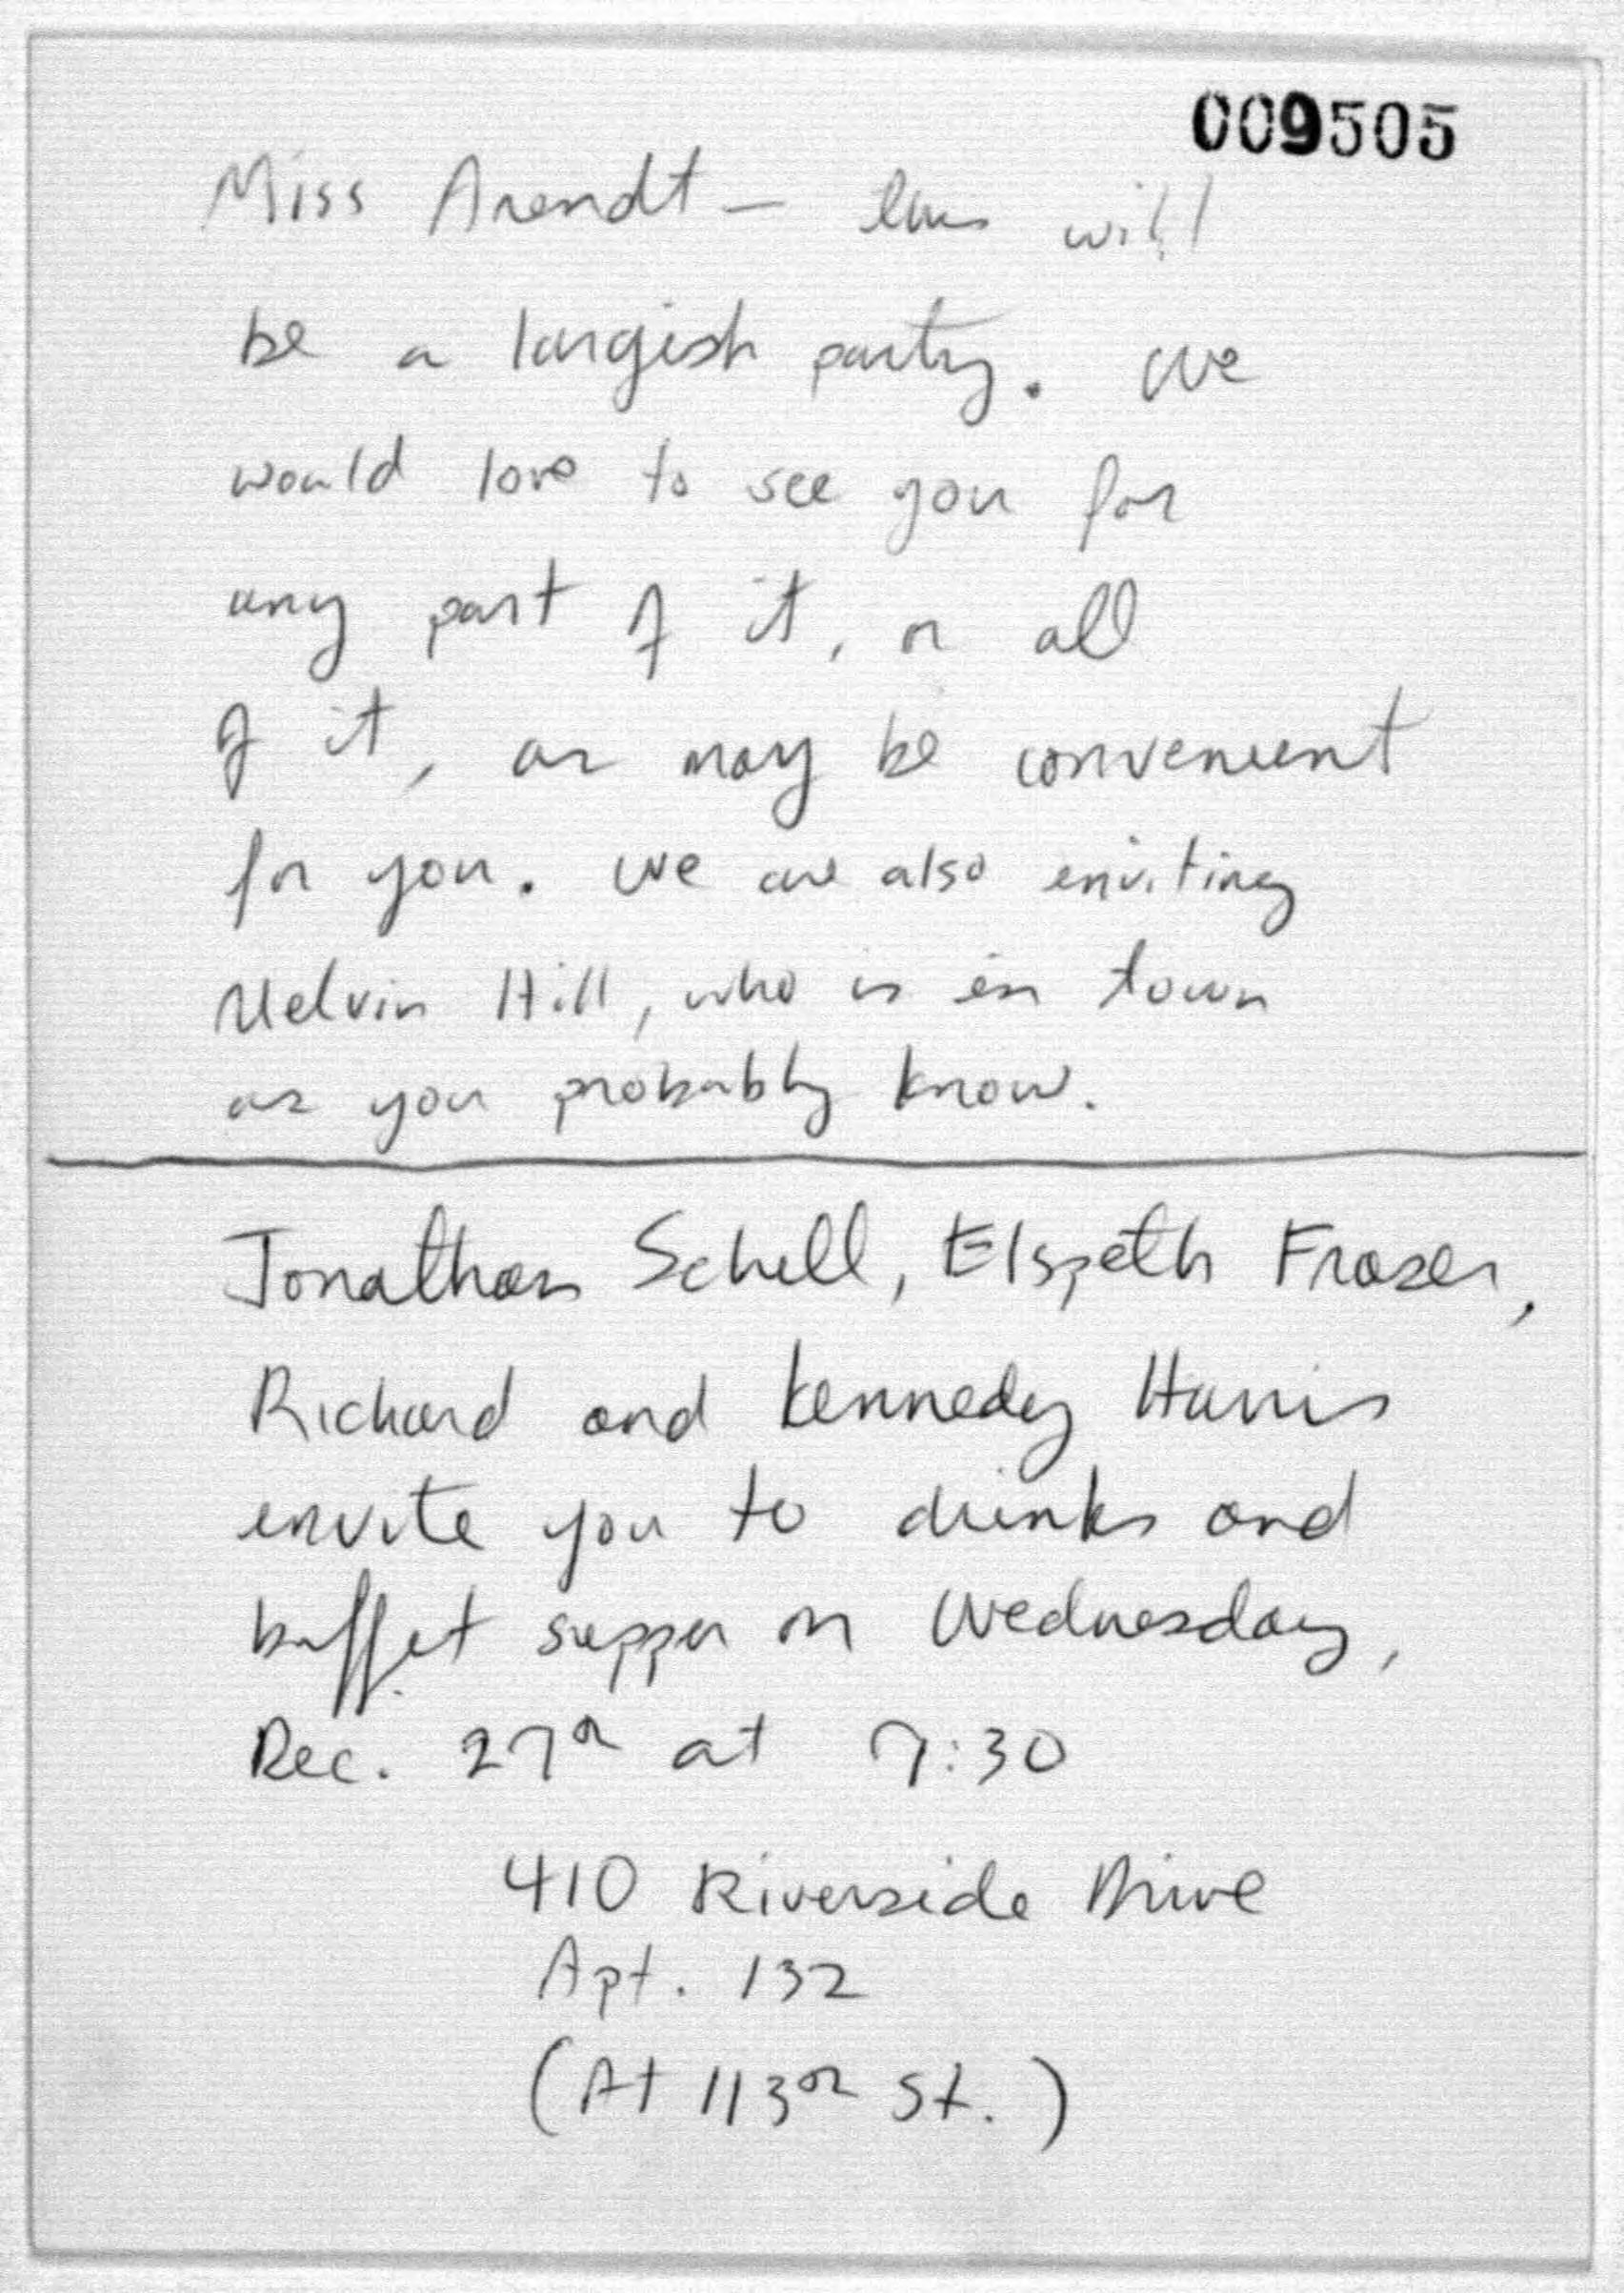 009505
Miss Arendt — this will
be a largish party. We
would love to see you for
any part of it, or all
of it, as may be convenient
for you. We are also inviting
Melvin Hill, who is in town
as you probably know.
Jonathan Schell, Elspeth Fraser,
Richard and Kennedy Harris
invite you to drinks and
buffet supper on Wednesday,
Dec. 27th at 7:30
410 Riverside Drive
Apt. 132
(At 113th St.)